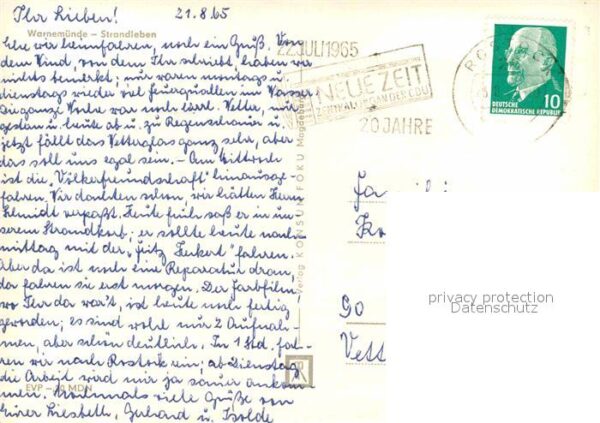 Ihr Lieben! 21.8.65
Warnemünde - Strandleben
Ehe wir heimfahren, noch ein Gruß. Von
dem Wind, von dem Ihr schreibt, haben wir
nichts bemerkt; nur waren montags u.
dienstags wieder viel Feuerquallen im Wasser.
Die ganze Woche war noch Wetter, nur
gestern u. heute ab u. zu Regenschauer u.
jetzt fällt das Wetterglas ganz sehr, aber
das soll uns egal sein. - Am Mittwoch
ist die „Völkerfreundschaft" hinausge-
fahren. Wir dachten schon, wir hätten Herrn
Schmidt verpaßt. Heute früh saß er in un-
serem Strandkorb; er sollte heute nach-
mittag mit der „Fritz Heckert" fahren.
Aber da ist noch eine Reparatur dran,
da fahren sie erst morgen. Der Farbfilm
wo Ihr da war't, ist heute noch fertig
geworden; es sind wohl nur 2 Aufnah-
men, aber schön deutlich. In 1 Std. fah-
ren wir nach Rostock rein; ab Dienstag
die Arbeit wird mir ja sauer ankom-
men. Nochmals viele Grüße von
Eurer Liesbeth, Gerhard u. Isolde
EVP - 20 MDN
Verlag KONSUM FOKU Magdeburg
22.JULI 1965
NEUE ZEIT
ZENTRALORGAN DER CDU
20 JAHRE
ROSTOCK
10
DEUTSCHE
DEMOKRATISCHE REPUBLIK
90
Vett
privacy protection
Datenschutz